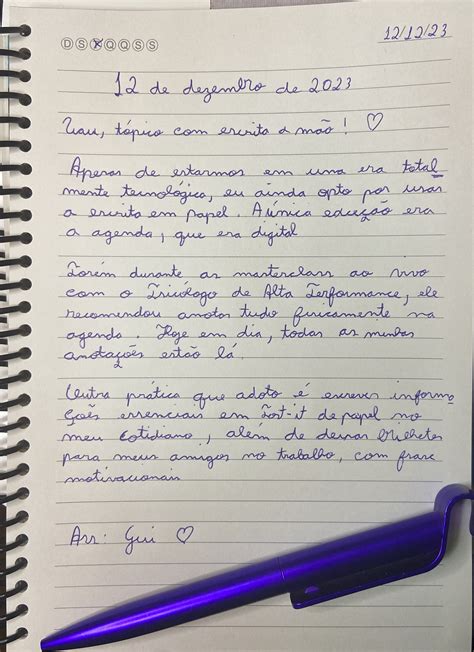 12/12/23
D S T Q Q S S
12 de dezembro de 2023
Uau, tópico com escrita a mão! ♡
Apesar de estarmos em uma era total
mente tecnológica, eu ainda opto por usar
a escrita em papel. A única exceção era
a agenda, que era digital
Porém durante as masterclass ao vivo
com o Tricólogo de Alta Performance, ele
recomendou anotar tudo fisicamente na
agenda. Hoje em dia, todas as minhas
anotações estão lá.
Outra prática que adoto é escrever informa
ções essenciais em Post-it de papel no
meu cotidiano, além de deixar bilhetes
para meus amigos no trabalho, com frase
motivacionais
Ass: Gui ♡